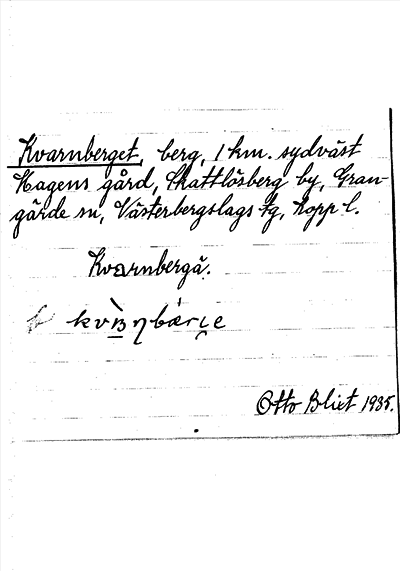 Kvarnberget, berg, 1 km. sydväst
Hagens gård, Skattlösberg by, Gran-
gärde sn, Västerbergslags tg, Kopp l.
Kvarnbergä.
Otto Blixt 1935.